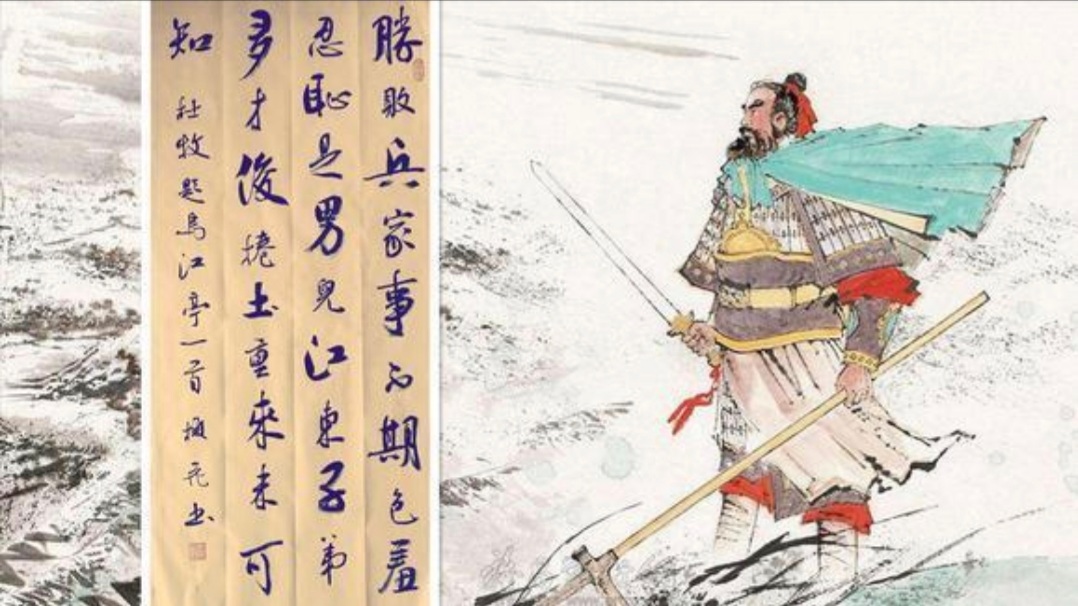 勝敗兵家事不期包羞
忍恥是男兒江東子弟
多才俊捲土重來未可
知
杜牧題烏江亭一首 书